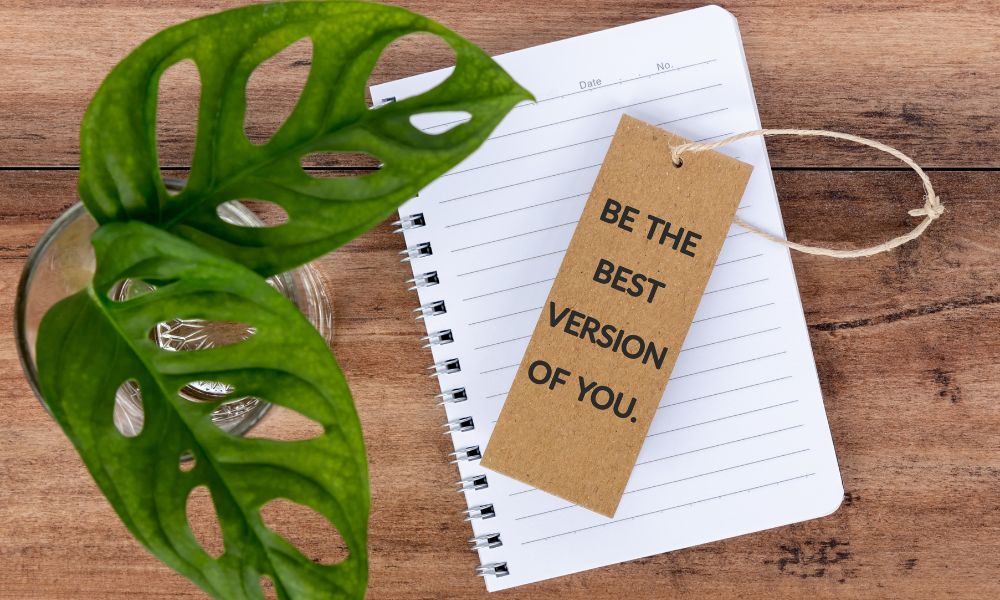 Date No.
BE THE
BEST
VERSION
OF YOU.